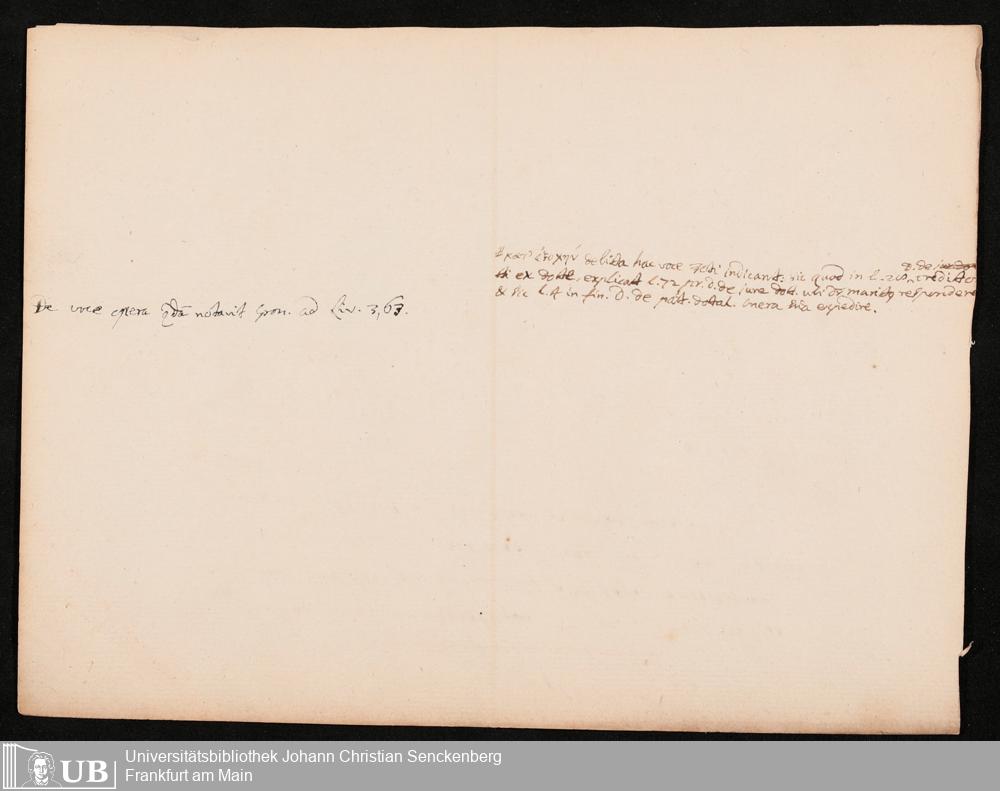 De voce opera qdã notavit Gron. ad Liv. 3, 63.
κατ' ἐξοχὴν debita hac voce indicant. sic quod in l.
ex dote, explicat l. 72 pr. D. de iure dot. ubi respondere
& sic l. 4 in fin. D. de pact. dotal. onera expedire.
Universitätsbibliothek Johann Christian Senckenberg
Frankfurt am Main
UB